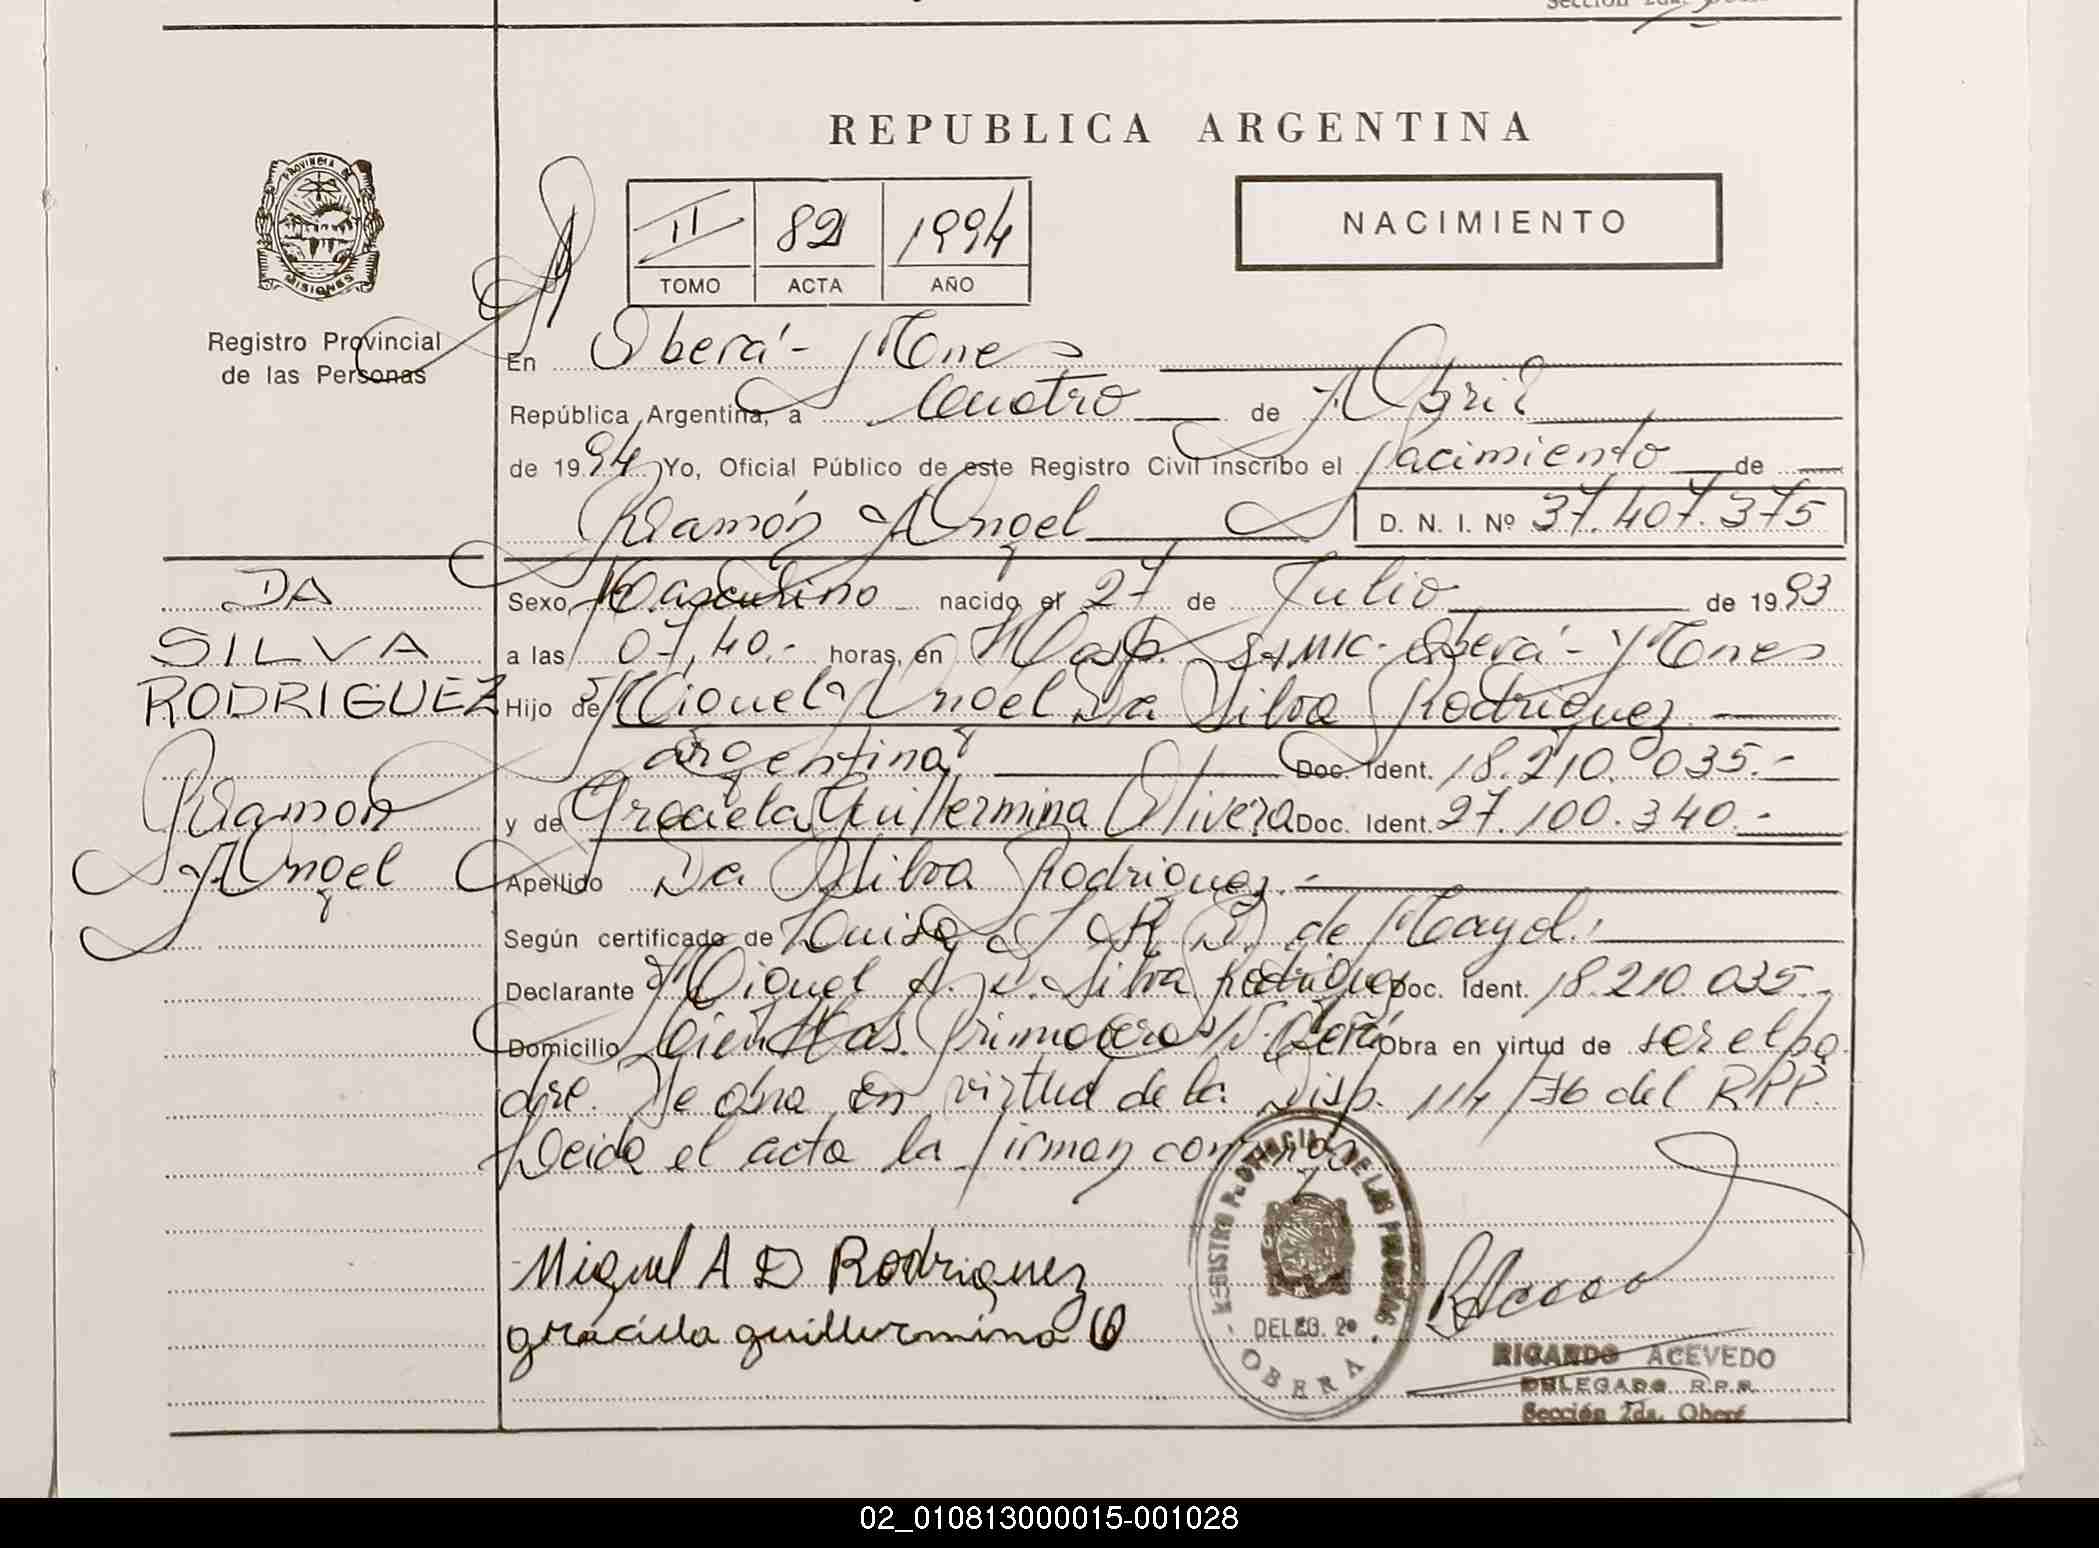 Sección 2da.
REPUBLICA ARGENTINA
PROVINCIA DE
MISIONES
Registro Provincial
de las Personas
II 82 1994
TOMO ACTA AÑO
NACIMIENTO
En Oberá - Mnes
República Argentina, a Cuatro de Abril
de 1994 Yo, Oficial Público de este Registro Civil inscribo el Nacimiento de
Ramón Angel D. N. I. Nº 37.407.375
DA
SILVA
RODRIGUEZ
Ramon
Angel
Sexo Masculino nacido el 27 de Julio de 1993
a las 07,40.- horas, en Hosp. SAMIC - Oberá - Mnes
Hijo de Miguel Angel Da Silva Rodriguez
argentina Doc. Ident. 18.210.035.-
y de Graciela Guillermina Olivera Doc. Ident. 27.100.340.-
Apellido Da Silva Rodriguez.-
Según certificado de Luisa de Mayol.
Declarante Miguel A. D. Silva Rodriguez Doc. Ident. 18.210.035.-
Domicilio Obra en virtud de ser el pa
dre. Se obra en virtud de la Disp. 114/76 del RPP.
Leida el acta la firman conmigo
Miguel A D Rodriguez
graciela guillermina O
REGISTRO PROVINCIAL DE LAS PERSONAS
DELEG. 2a
OBERA
RICARDO ACEVEDO
DELEGADO R.P.P.
Sección 2da. Oberá
02_010813000015-001028